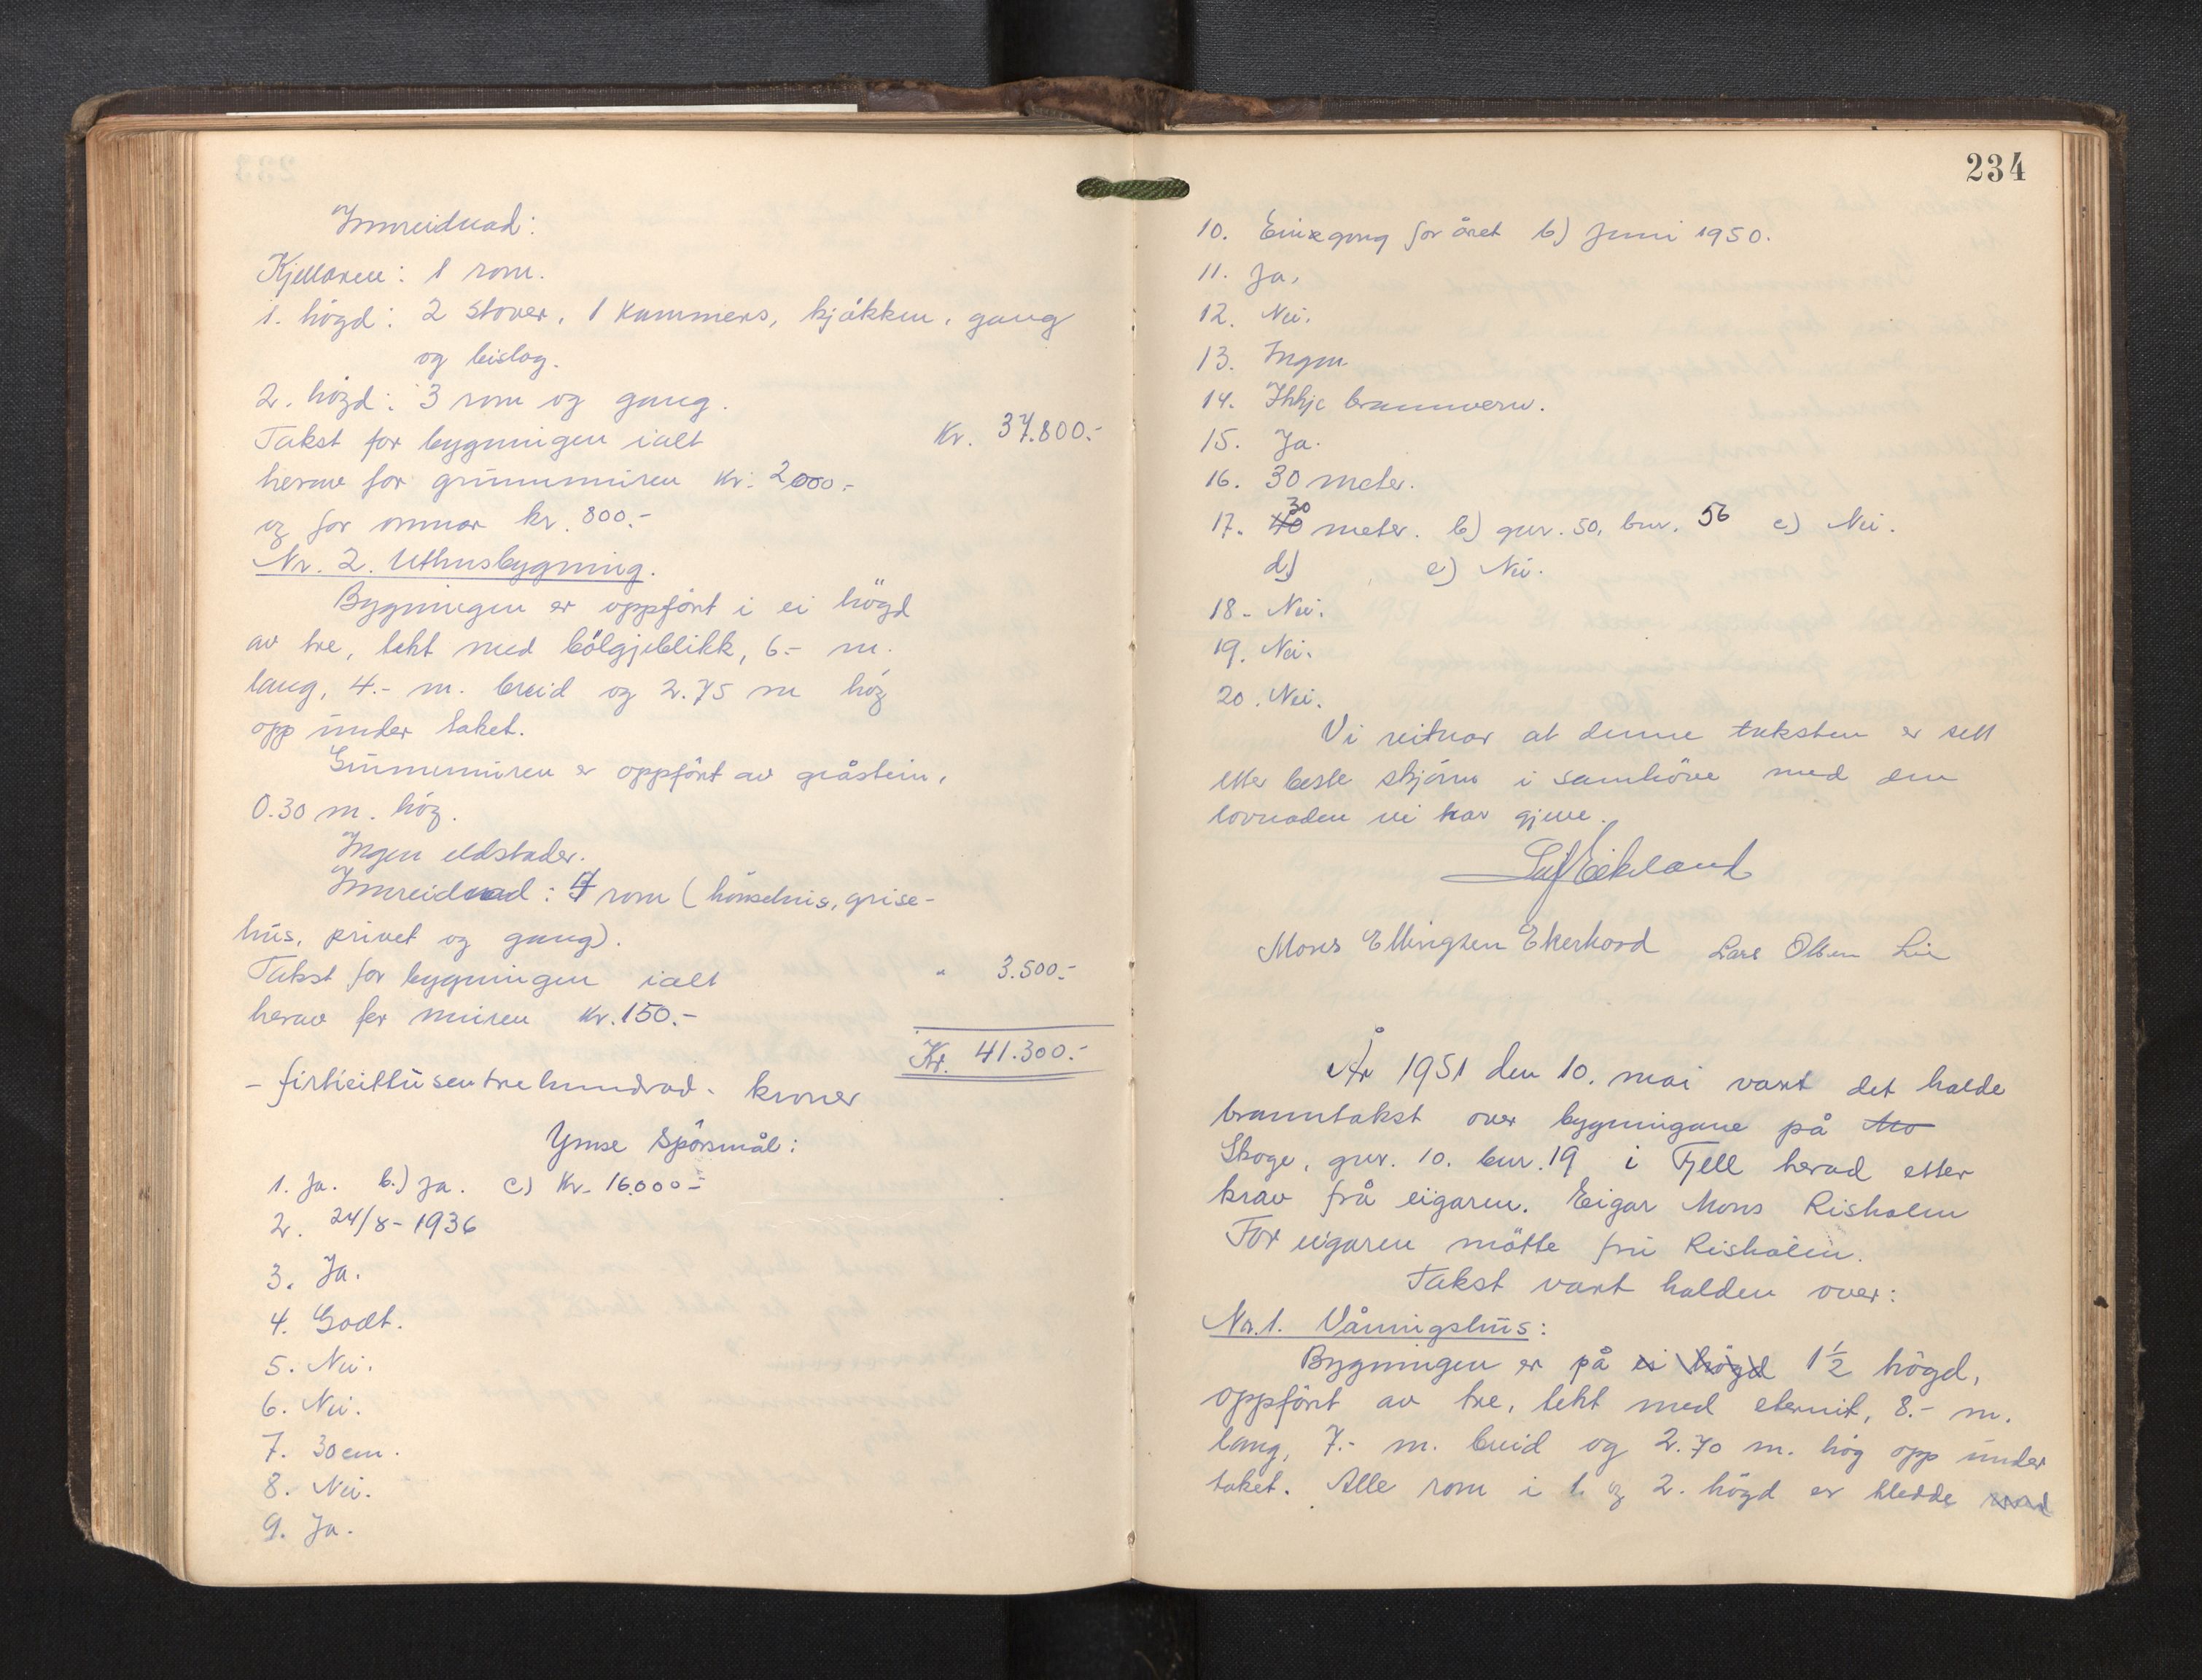 Innreidnad:
Kjellaren: 1 rom.
1. högd: 2 stover, 1 kammers, kjökken, gang
og bislag.
2. högd: 3 rom og gang.
Takst for bygningen ialt Kr. 37.800.-
herav for grunnmuren kr. 2000.-
og for omnar kr. 800.-
Nr. 2. Uthusbygning.
Bygningen er oppfört i ei högd
av tre, tekt med bölgjeblikk, 6.- m.
lang, 4.- m. breid og 2.75 m hög
opp under taket.
Grunnmuren er oppfört av gråstein,
0.30 m. hög.
Ingen eldstader.
Innreidnad: 4 rom (hönsehus, grise-
hus, privet og gang).
Takst for bygningen ialt " 3.500.-
herav for muren kr. 150.-
Kr. 41.300.-
- firtieittusentrehundrad - kroner
Ymse spörsmål:
1. Ja. b.) Ja. c) Kr. 16.000.-
2. 24/8-1936
3. Ja.
4. Godt.
5. Nei.
6. Nei.
7. 30 cm.
8. Nei.
9. Ja.
234
10. Ein gong for året b) Juni 1950.
11. Ja.
12. Nei.
13. Ingen
14. Ikkje brannvern.
15. Ja.
16. 30 meter.
17. 30 meter. b) gnr. 50, bnr. 56 c) Nei.
d) e) Nei.
18. Nei.
19. Nei.
20. Nei.
Vi veitnar at denne taksten er sett
etter beste skjönn i samhöve med den
lovnaden vi har gjeve.
Leif Eikeland
Mons Ellingsen Ekerhovd Lars Olsen Lie
År 1951 den 10. mai vart det halde
branntakst over bygningane på Mo
Skoge, gnr. 10. bnr. 19 i Fjell herad etter
krav frå eigaren. Eigar Mons Risholm
For eigaren mötte fru Risholm.
Takst vart halden over:
Nr. 1. Våningshus:
Bygningen er på ei högd 1½ högd,
oppfört av tre, tekt med eternit, 8.- m.
lang, 7.- m. breid og 2.70 m. hög opp under
taket. Alle rom i 1. og 2. högd er kledde med